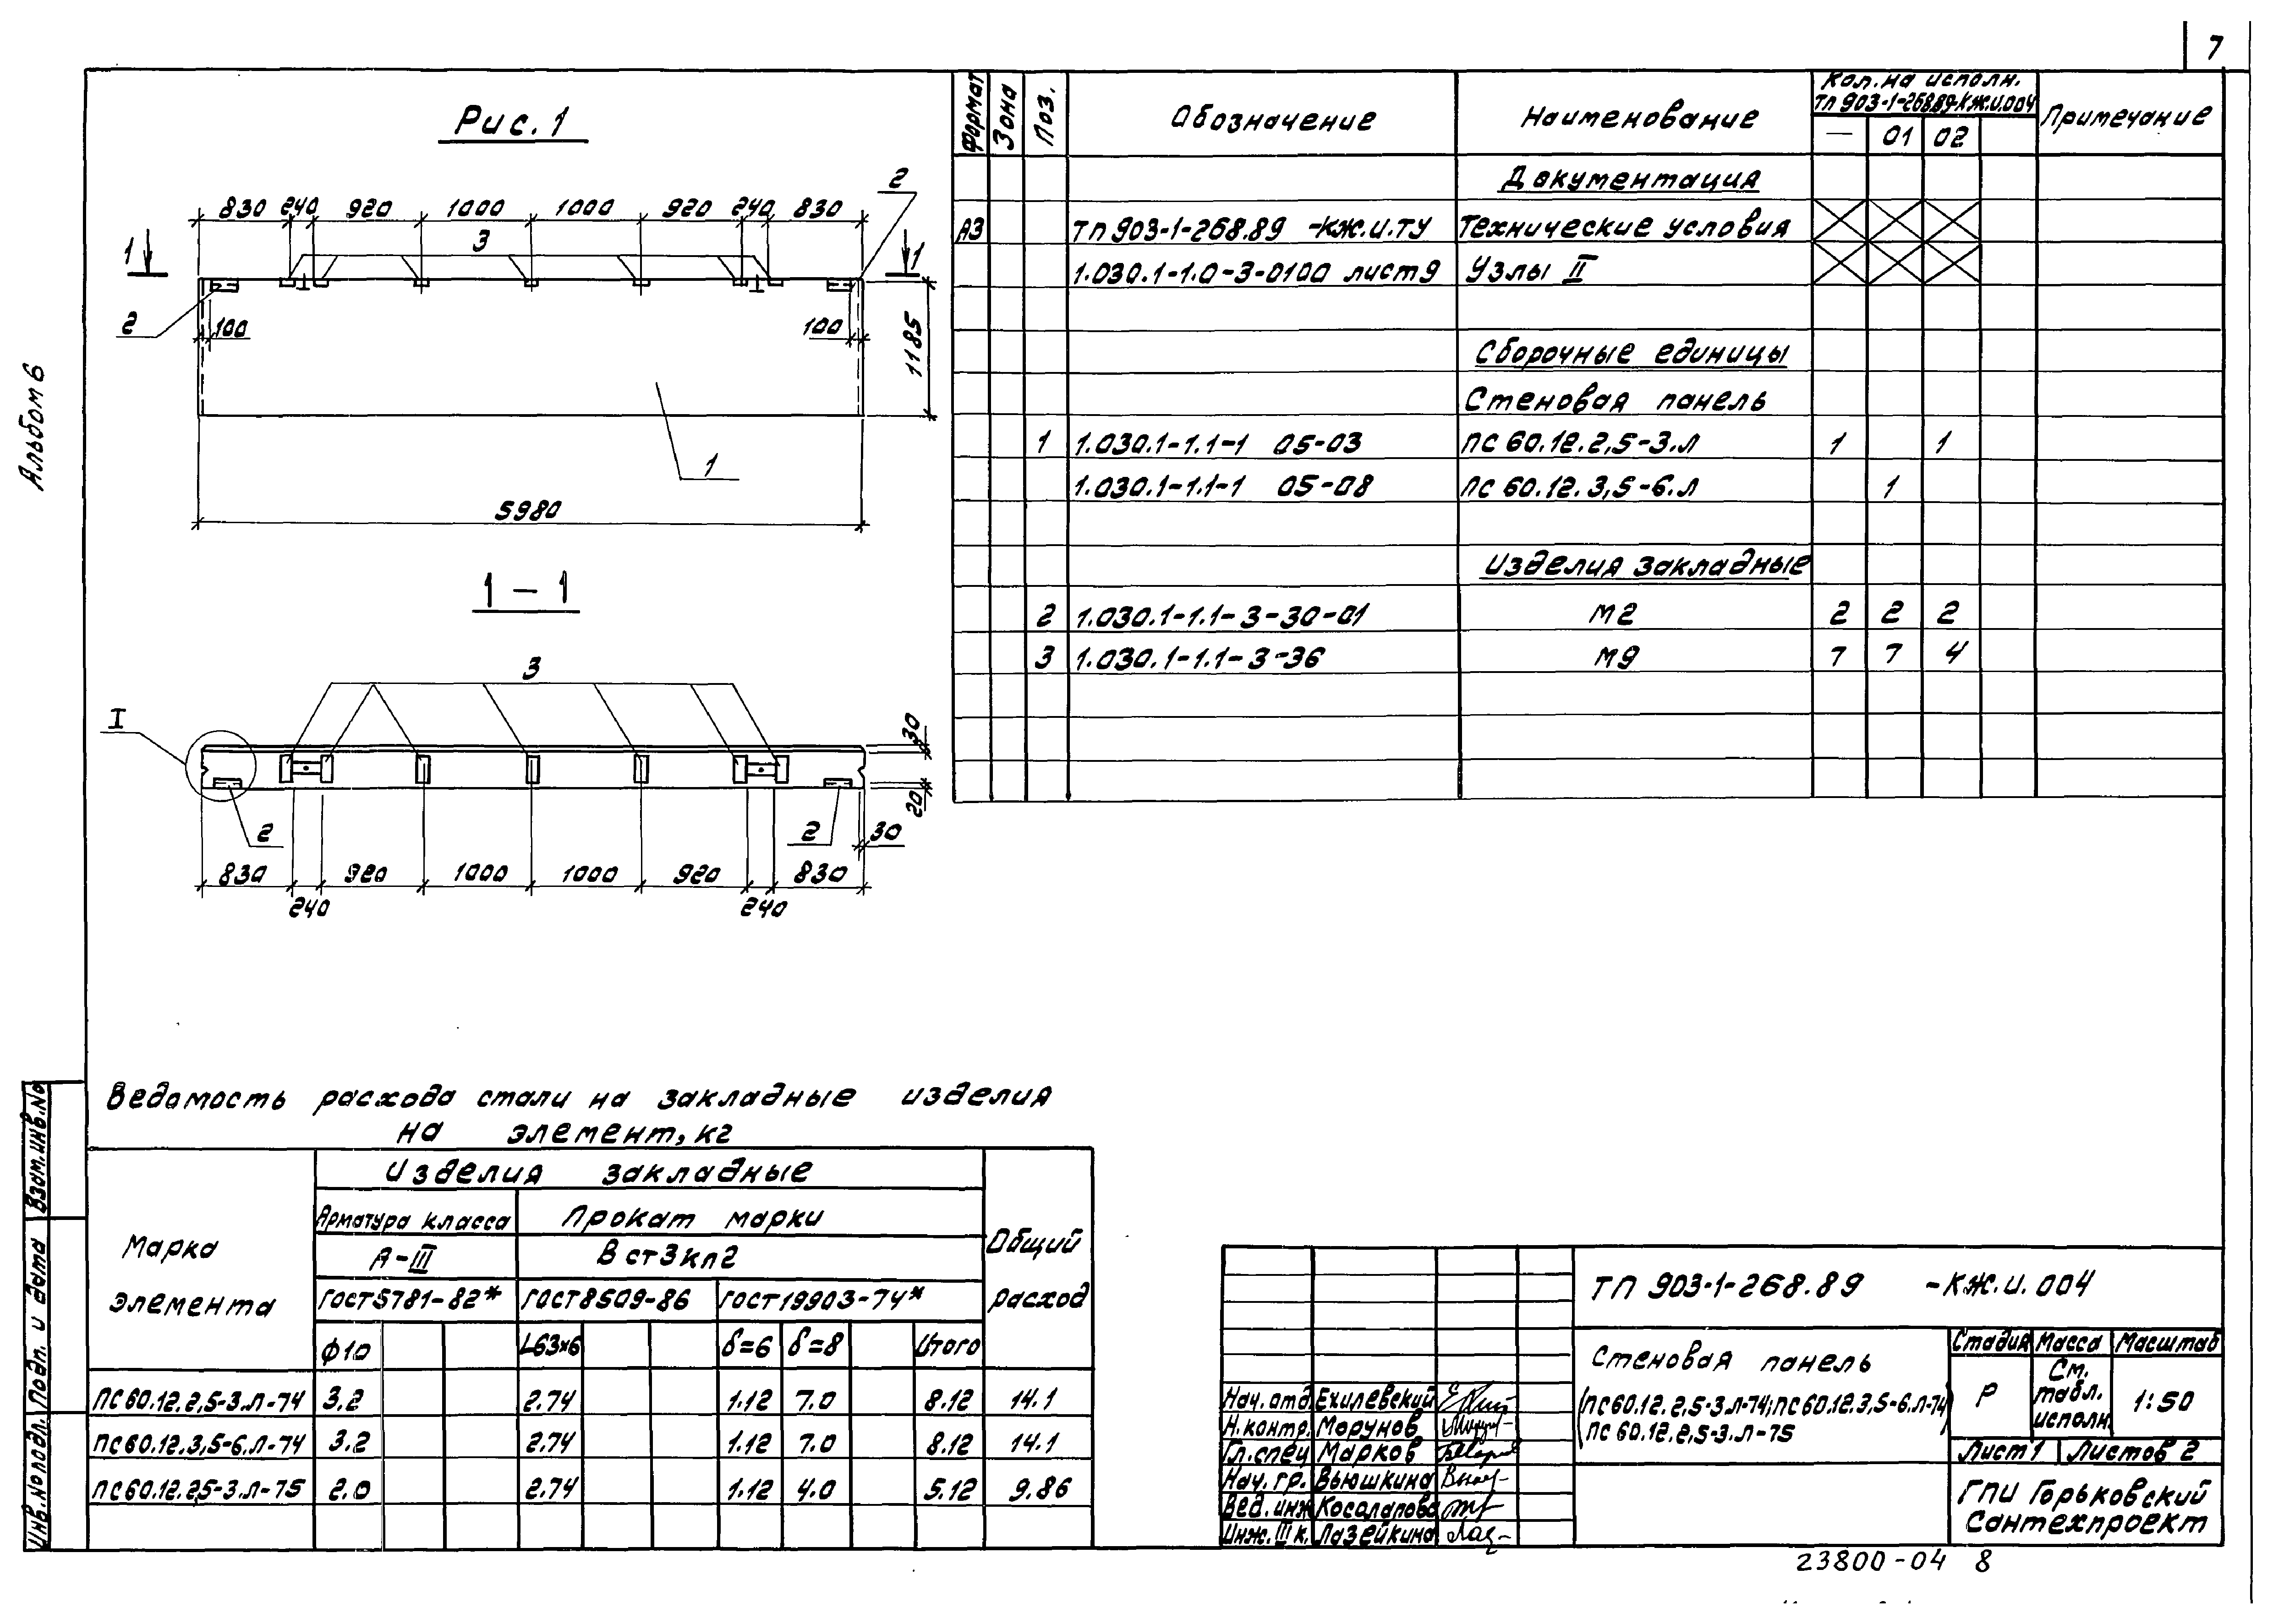 7
Альбом 6
Рис. 1
830 240 920 1000 1000 920 240 830
2
1 1
3
2
100 100
1185
1
5980
1 - 1
3
I
30
20
2 2
30
830 920 1000 1000 920 830
240 240
Формат Зона Поз. Обозначение Наименование Кол. на исполн. ТП 903-1-268.89-КЖ.И.004 Примечание
— 01 02
Документация
А3 ТП 903-1-268.89 -КЖ.И.ТУ Технические условия
1.030.1-1.0-3-0100 лист 9 Узлы II
Сборочные единицы
Стеновая панель
1 1.030.1-1.1-1 05-03 ПС 60.12.2,5-3.Л 1 1
1.030.1-1.1-1 05-08 ПС 60.12.3,5-6.Л 1
Изделия закладные
2 1.030.1-1.1-3-30-01 М2 2 2 2
3 1.030.1-1.1-3-36 М9 7 7 4
Ведомость расхода стали на закладные изделия
на элемент, кг
Марка элемента
Изделия закладные
Общий расход
Арматура класса Прокат марки
А-III Вст3кп2
ГОСТ 5781-82* ГОСТ 8509-86 ГОСТ 19903-74*
ф10 L63×6 δ=6 δ=8 Итого
ПС 60.12.2,5-3.Л-74 3.2 2.74 1.12 7.0 8.12 14.1
ПС 60.12.3,5-6.Л-74 3.2 2.74 1.12 7.0 8.12 14.1
ПС 60.12.2,5-3.Л-75 2.0 2.74 1.12 4.0 5.12 9.86
Взам. инв. №
Подп. и дата
Инв. № подл.
ТП 903-1-268.89 -КЖ.И.004
Стеновая панель
(ПС 60.12.2,5-3.Л-74; ПС 60.12.3,5-6.Л-74
ПС 60.12.2,5-3.Л-75)
Стадия Масса Масштаб
Р См. табл. исполн. 1:50
Лист 1 Листов 2
Нач. отд. Ехилевский
Н. контр. Морунов
Гл. спец Марков
Нач. гр. Вьюшкина
Вед. инж Косолапова
Инж. III к. Лазейкина
ГПИ Горьковский
Сантехпроект
23800-04 8